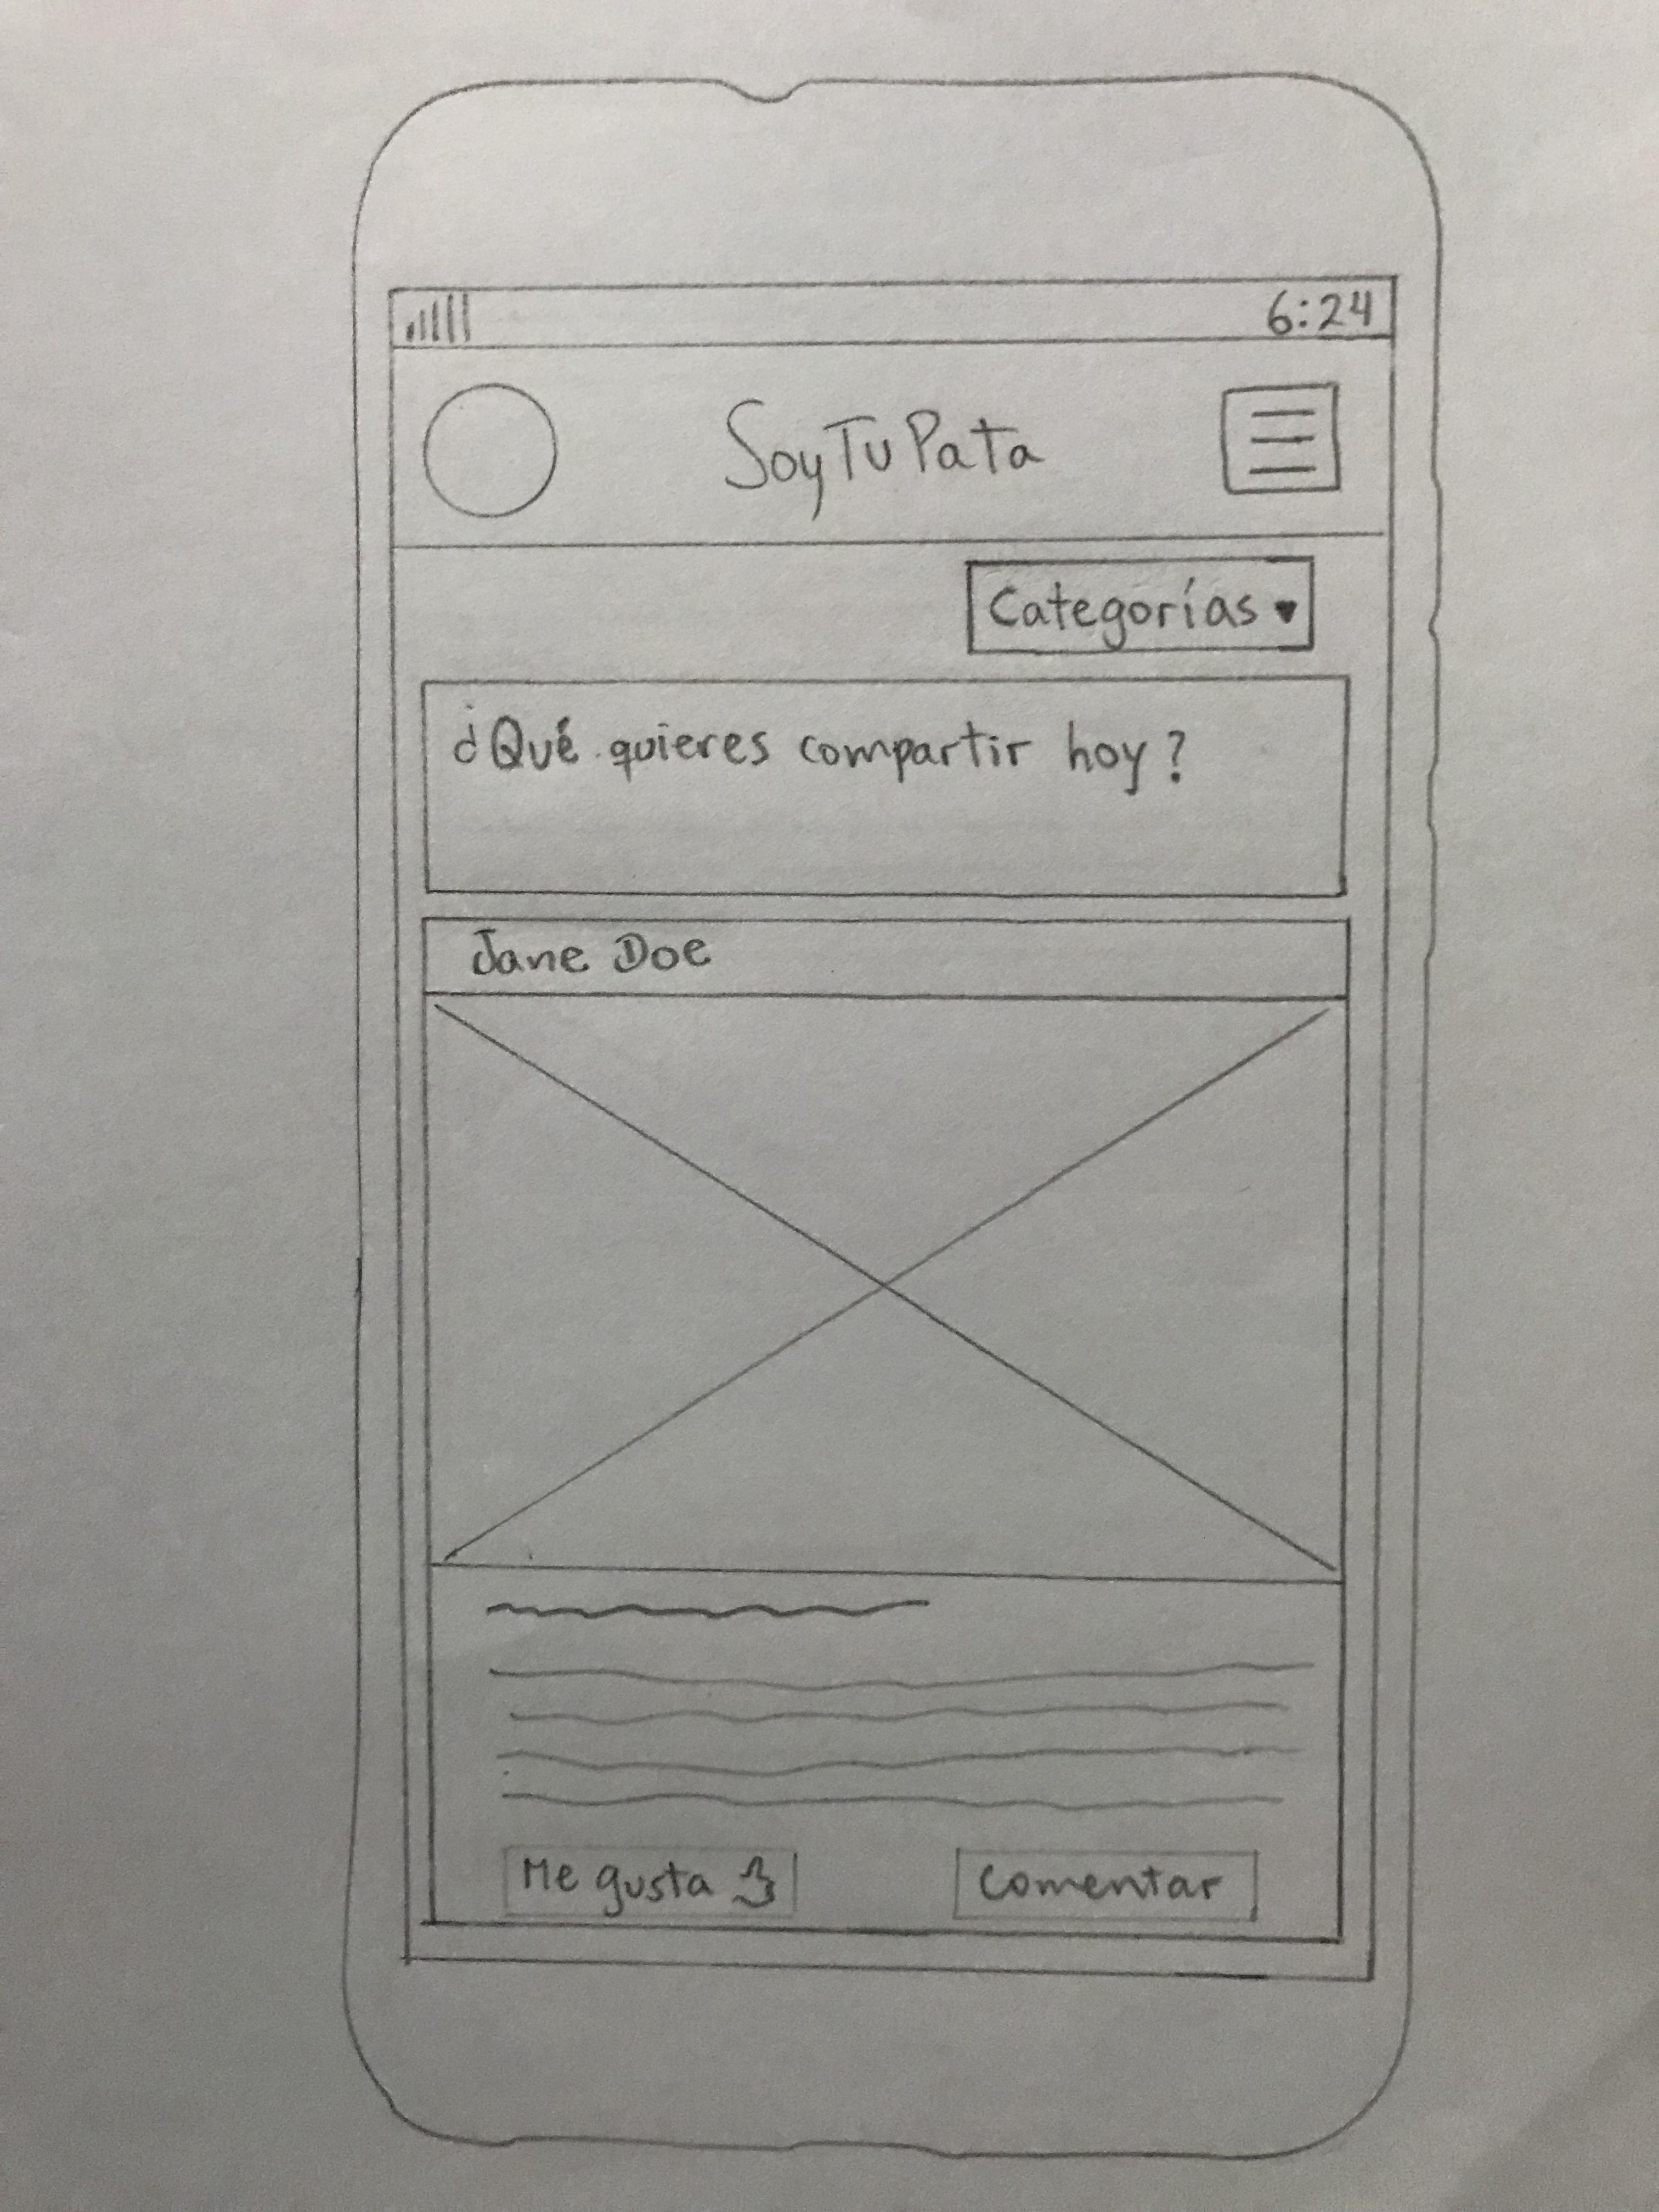 6:24
SoyTuPata
Categorías
¿Qué quieres compartir hoy?
Jane Doe
Me gusta
Comentar